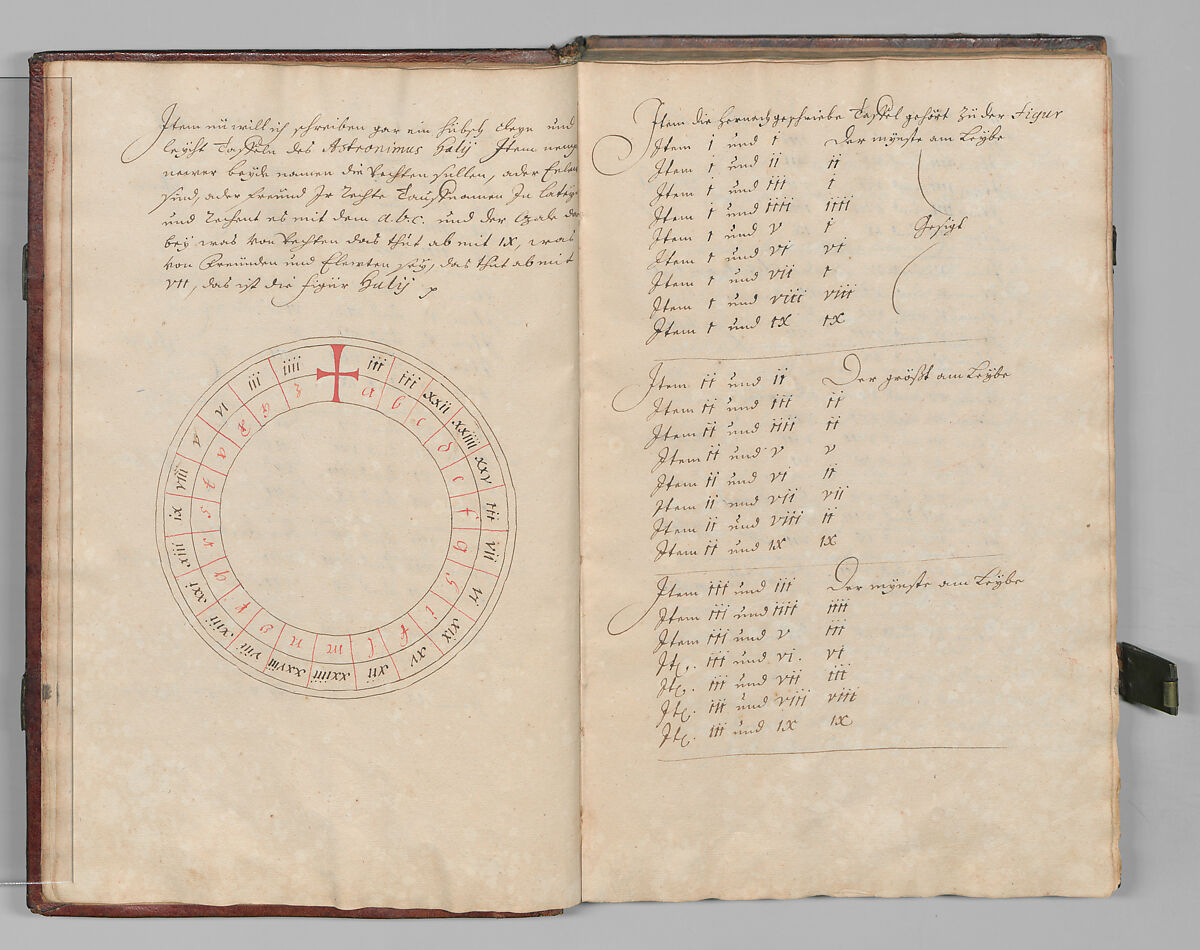 Item nů will ich schreiben gar ein hübsch cleyn und
leycht Taffeln des Astronimus Halÿ Item
newer beyde namen die vechten sullen, ader
sind, ader freünd Ir rechte Tauffnamen In
und rechent es mit dem a.b.c. und der Czale
bey was von vechten das thut ab mit IX, was
von freünden und Elewten sey, das thut ab mit
VII, das ist die figür Halÿ
iii
iii
xxii
xxiiii
xxv
iii
vii
vi
xix
xv
xii
xxiiii
xxviii
viii
xiii
xxi
xiii
ix
viii
v
vi
iii
iiii
a
b
c
d
e
f
g
h
i
k
l
m
n
o
p
q
r
s
t
v
x
y
z
Item die hernach geschriebe Taffel gehört zü der Figur
Item i und i Der mynste am Leybe
Item i und ii ii
Item i und iii i
Item i und iiii iiii
Item i und v i
Gesigt
Item i und vi vi
Item i und vii i
Item i und viii viii
Item i und ix ix
Item ii und ii Der gröst am Leybe
Item ii und iii ii
Item ii und iiii ii
Item ii und v v
Item ii und vi ii
Item ii und vii vii
Item ii und viii ii
Item ii und ix ix
Item iii und iii Der mynste am Leybe
Item iii und iiii iiii
Item iii und v iii
It. iii und vi. vi
It. iii und vii iii
It. iii und viii viii
It. iii und ix ix